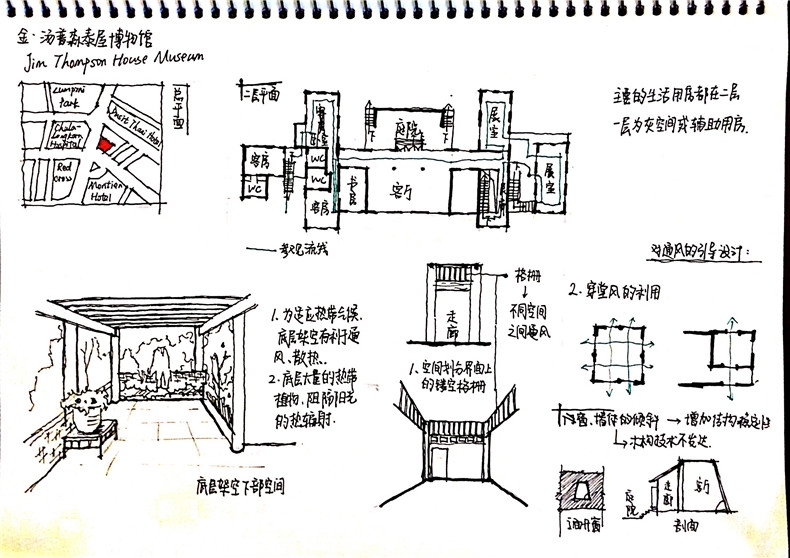 金·汤普森泰屋博物馆
Jim Thompson House Museum
Lumpini Park
Dusit Thani Hotel
Chula-longkorn Hospital
Red cross
Montien Hotel
总平面
二层平面
客房
WC
WC
WC
客房
书房
庭院
下
下
客厅
展室
展室
参观流线
主要的生活用房都在二层
一层为灰空间或辅助用房.
对通风的引导设计:
1. 为适应热带气候,
底层架空有利于通
风、散热.
2. 底层大量的热带
植物,阻隔阳光
的热辐射.
底层架空下部空间
走廊
格栅
不同空间
之间通风
1、空间划分界面上
的镂空格栅
2. 穿堂风的利用
门窗、墙体的倾斜 → 增加结构稳定性
木构技术不发达.
立面开窗
庭院
走廊
客厅
剖面